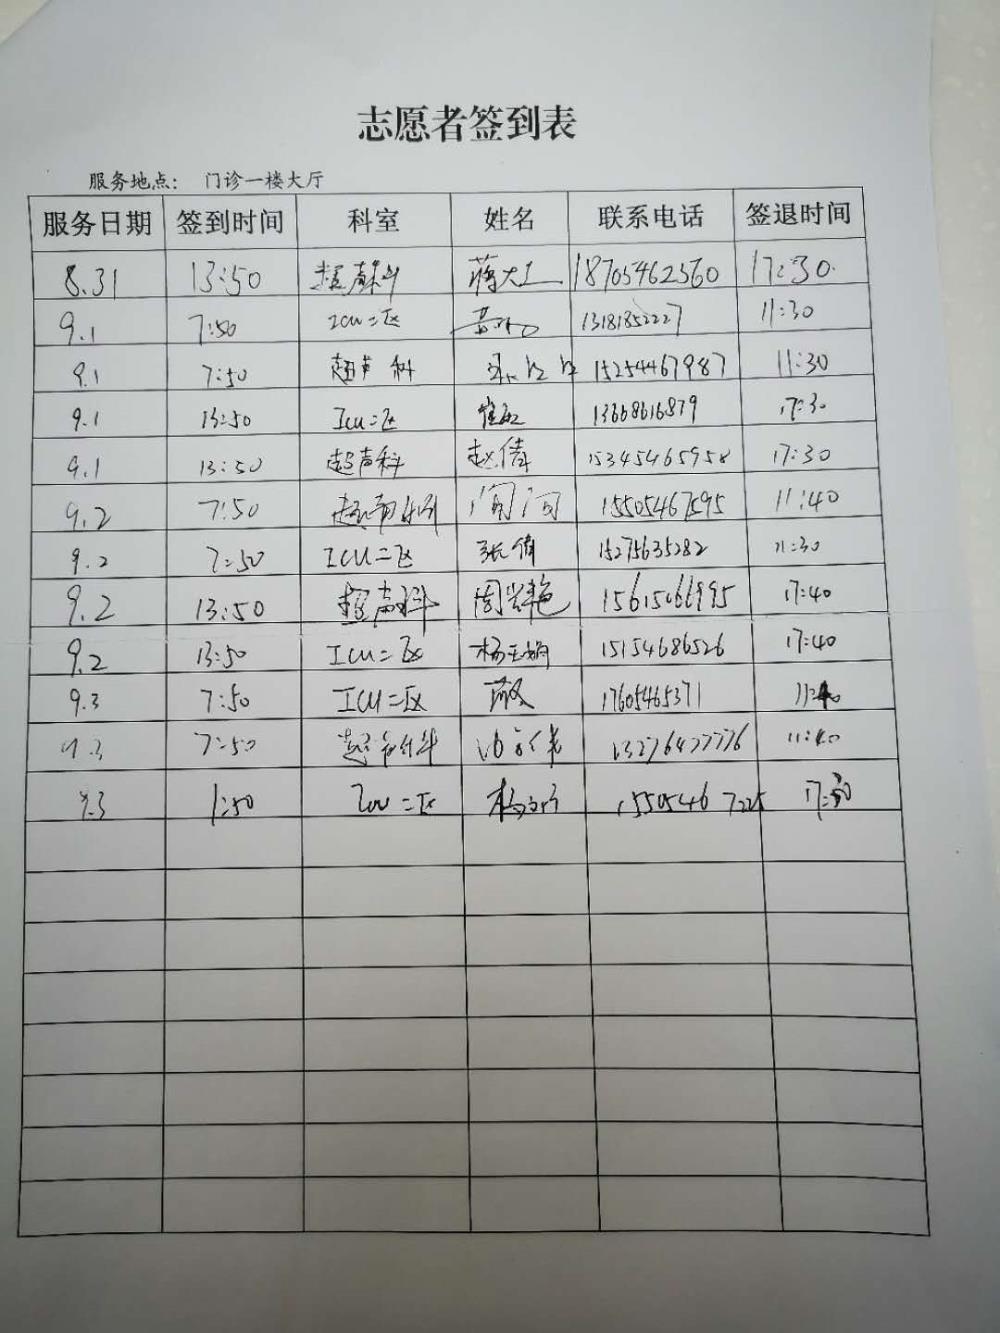 志愿者签到表
服务地点： 门诊一楼大厅
服务日期 签到时间 科室 姓名 联系电话 签退时间
8.31 13:50 超声科 蒋大工 18705462560 17:30
9.1 7:50 ICU二区 13181852227 11:30
9.1 7:50 超声科 15254467987 11:30
9.1 13:50 ICU二区 13668616879 17:30
9.1 13:50 超声科 赵倩 15345465958 17:30
9.2 7:50 超声科 15505467595 11:40
9.2 7:50 ICU二区 张倩 15275635282 11:30
9.2 13:50 超声科 周兴艳 15615066995 17:40
9.2 13:50 ICU二区 杨玉娟 15154686526 17:40
9.3 7:50 ICU二区 17605465371 11:40
9.3 7:50 超声科 13276477776 11:40
9.3 1:50 ICU二区 15505467225 17:30